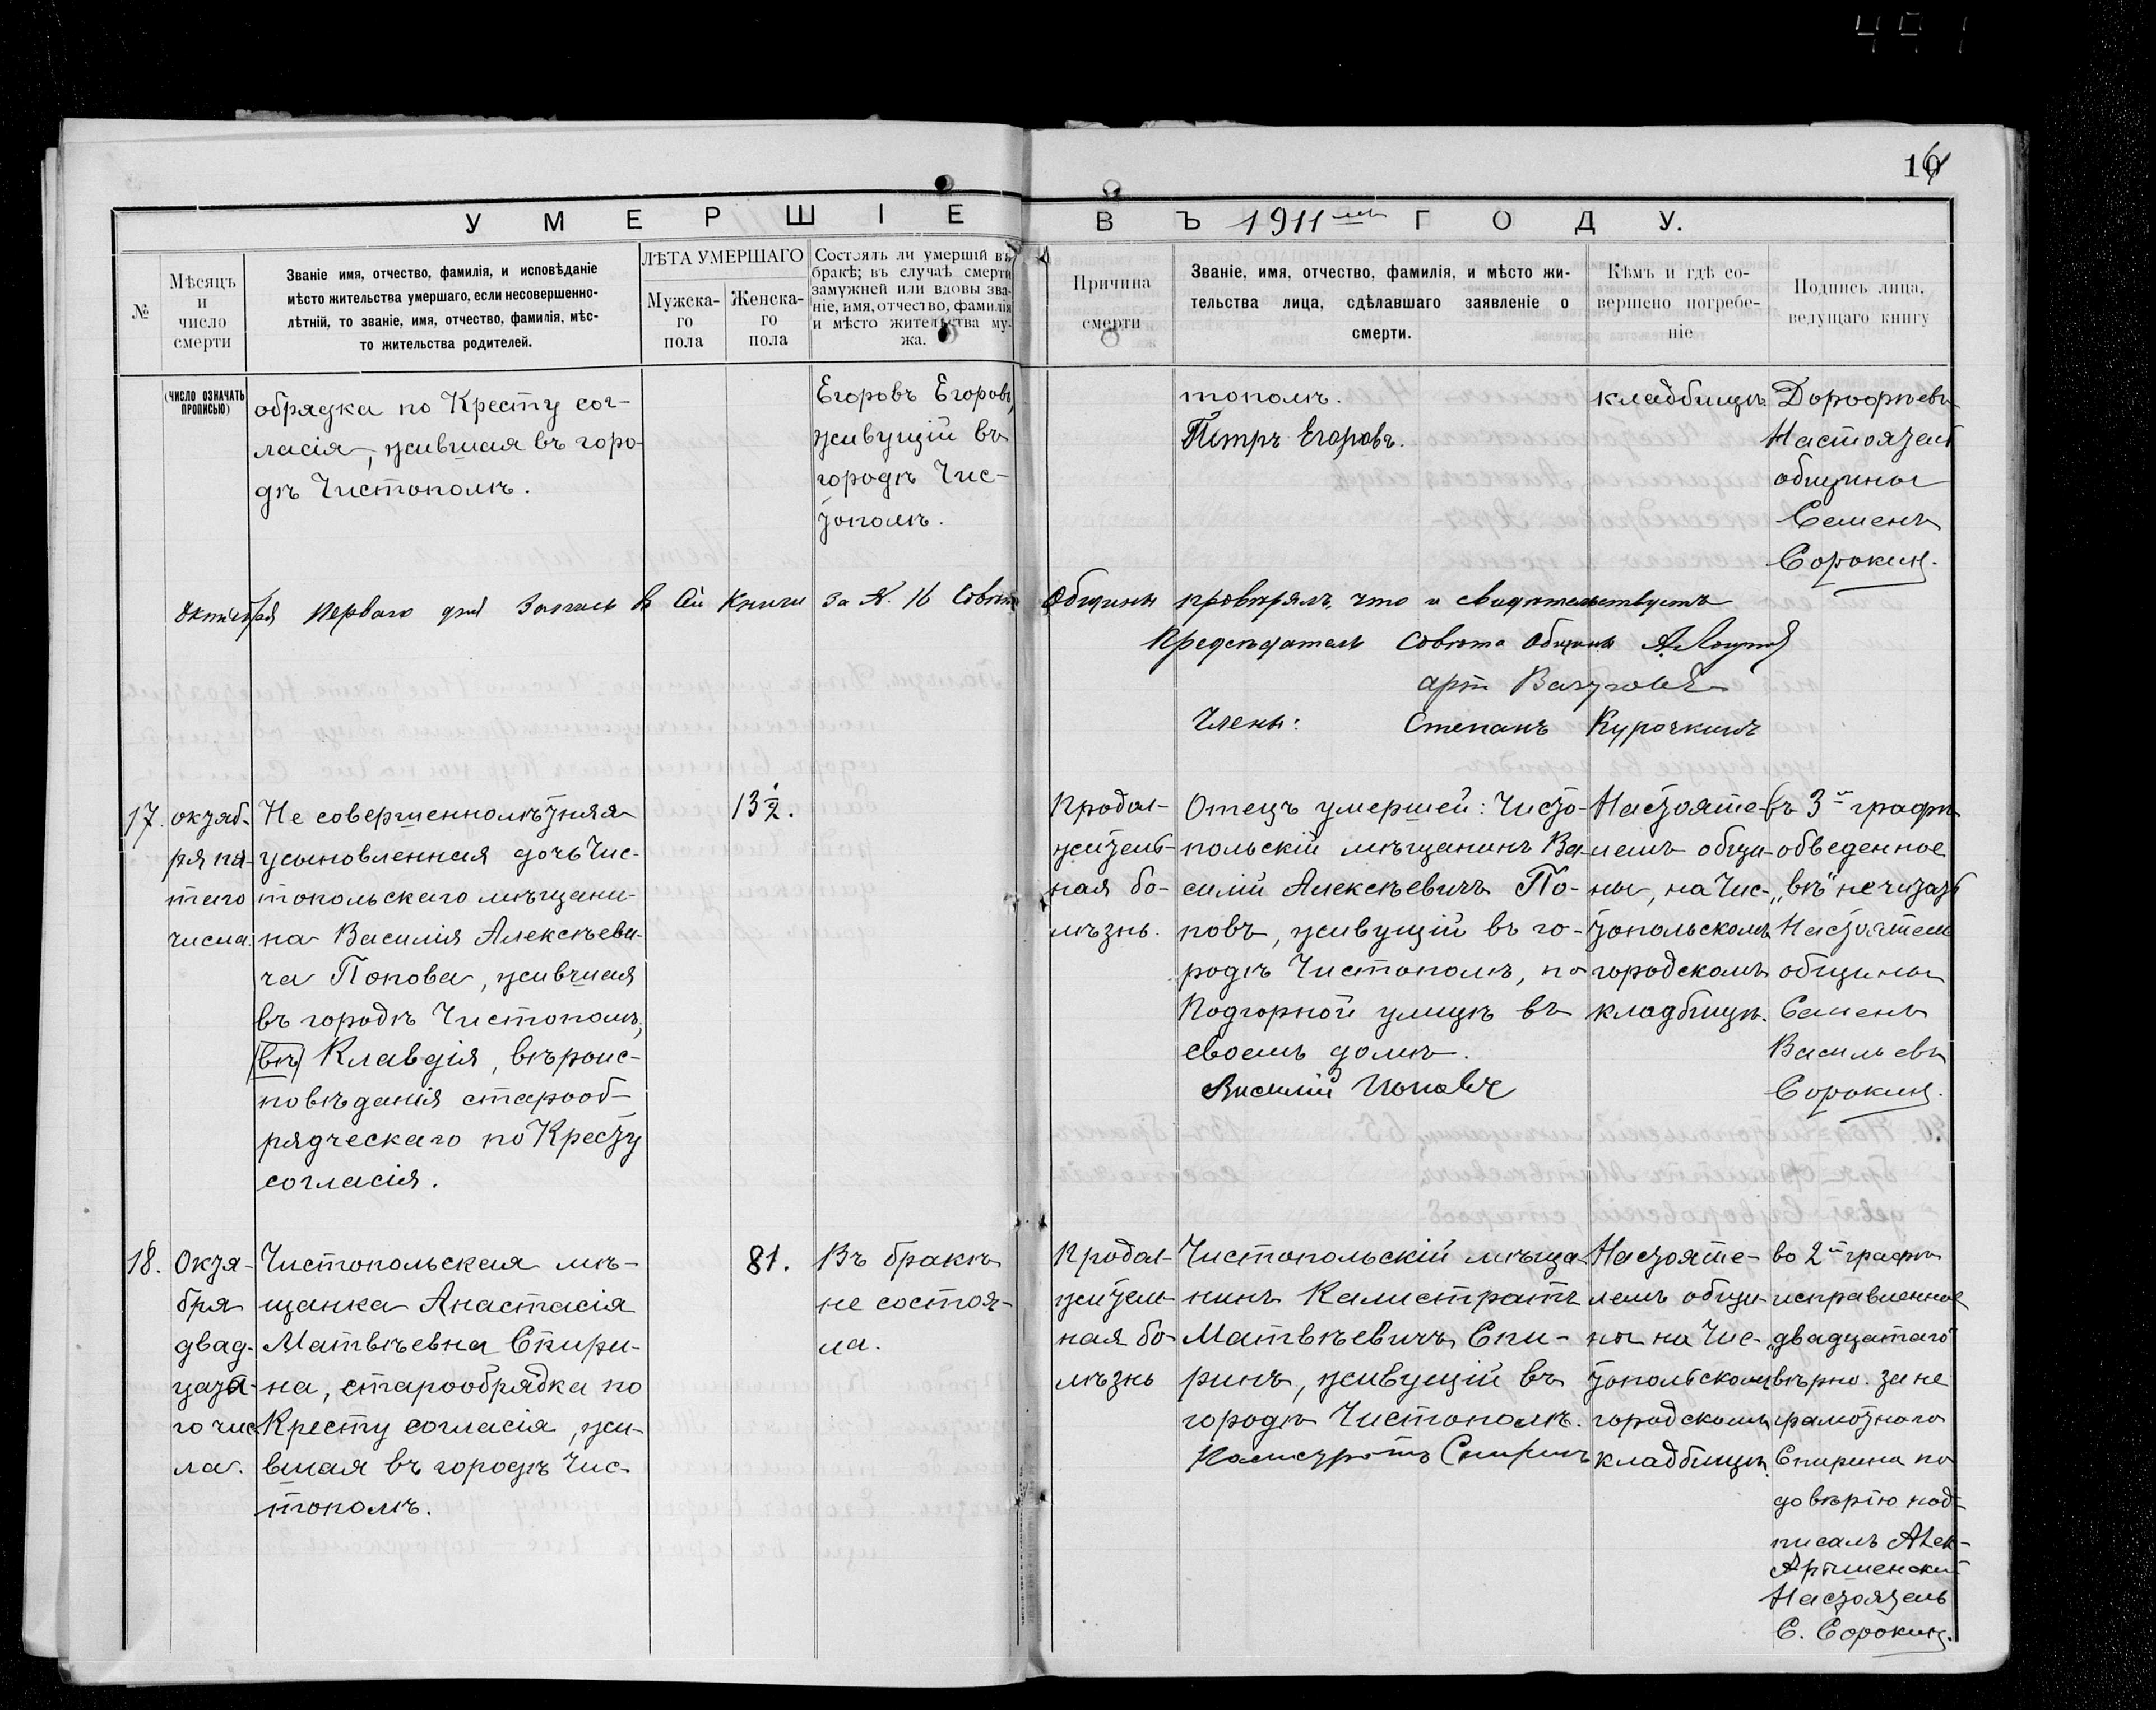 10
УМЕРШІЕ
ВЪ 1911мъ ГОДУ.
№
Мѣсяцъ
и
число
смерти
Званіе имя, отчество, фамилія, и исповѣданіе
мѣсто жительства умершаго, если несовершенно-
лѣтній, то званіе, имя, отчество, фамилія, мѣс-
то жительства родителей.
ЛѢТА УМЕРШАГО
Мужска-
го
пола
Женска-
го
пола
Состоялъ ли умершій въ
бракѣ; въ случаѣ смерти
замужней или вдовы зва-
ніе, имя, отчество, фамилія
и мѣсто жительства му-
жа.
Причина
смерти
Званіе, имя, отчество, фамилія, и мѣсто жи-
тельства лица, сдѣлавшаго заявленіе о
смерти.
Кѣмъ и гдѣ со-
вершено погребе-
ніе
Подпись лица,
ведущаго книгу
(ЧИСЛО ОЗНАЧАТЬ
ПРОПИСЬЮ)
обрядка по Кресту сог-
ласія, жившая въ горо-
дѣ Чистополѣ.
Егоровъ Егоровъ,
живущій въ
городѣ Чис-
тополѣ.
тополѣ.
Петръ Егоровъ.
кладбищѣ.
Дорофѣевъ
Настоятель
общины
Семенъ
Сорокинъ.
Октября перваго дня запись в сей книги за №. 16 Совѣтъ Общины провѣрялъ, что и свидѣтельствуетъ
Предсѣдатель Совѣта Общины
Члены: Степанъ Курочкинъ
17.
октяб-
ря пя-
таго
числа.
Не совершеннолѣтняя
усыновленная дочь Чис-
топольскаго мѣщани-
на Василія Алексѣеви-
ча Попова, жившая
въ городѣ Чистополѣ,
(вѣ) Клавдія, вѣроис-
повѣданія старооб-
рядческаго по Кресту
согласія.
13½.
Продол-
житель-
ная бо-
лѣзнь.
Отецъ умершей: Чисто-
польскій мѣщанинъ Ва-
силій Алексѣевичъ По-
повъ, живущій въ го-
родѣ Чистополѣ, по
Подгорной улицѣ въ
своемъ домѣ.
Василій Поповъ
Настояте-
лемъ общи-
ны, на Чис-
топольскомъ
городскомъ
кладбищѣ.
Въ 3й графѣ
обведенное
„вѣ" не читать
Настоятель
общины
Семенъ
Васильевъ
Сорокинъ.
18.
Октя-
бря
двад-
цата-
го чис-
ла.
Чистопольская мѣ-
щанка Анастасія
Матвѣевна Спири-
на, старообрядка по
Кресту согласія, жи-
вшая въ городѣ Чис-
тополѣ.
81.
Въ бракѣ
не состоя-
ла.
Продол-
жител-
ная бо-
лѣзнь
Чистопольскій мѣща-
нинъ Калистратъ
Матвѣевичъ Спи-
ринъ, живущій въ
городѣ Чистополѣ.
Калистратъ Спиринъ
Настояте-
лемъ общи-
ны на Чис-
топольскомъ
городскомъ
кладбищѣ.
во 2й графѣ
исправленное
„двадцатаго"
вѣрно. за не
грамотнаго
Спирина по
довѣрію под-
писалъ Алек-
Настоятель
С. Сорокинъ.